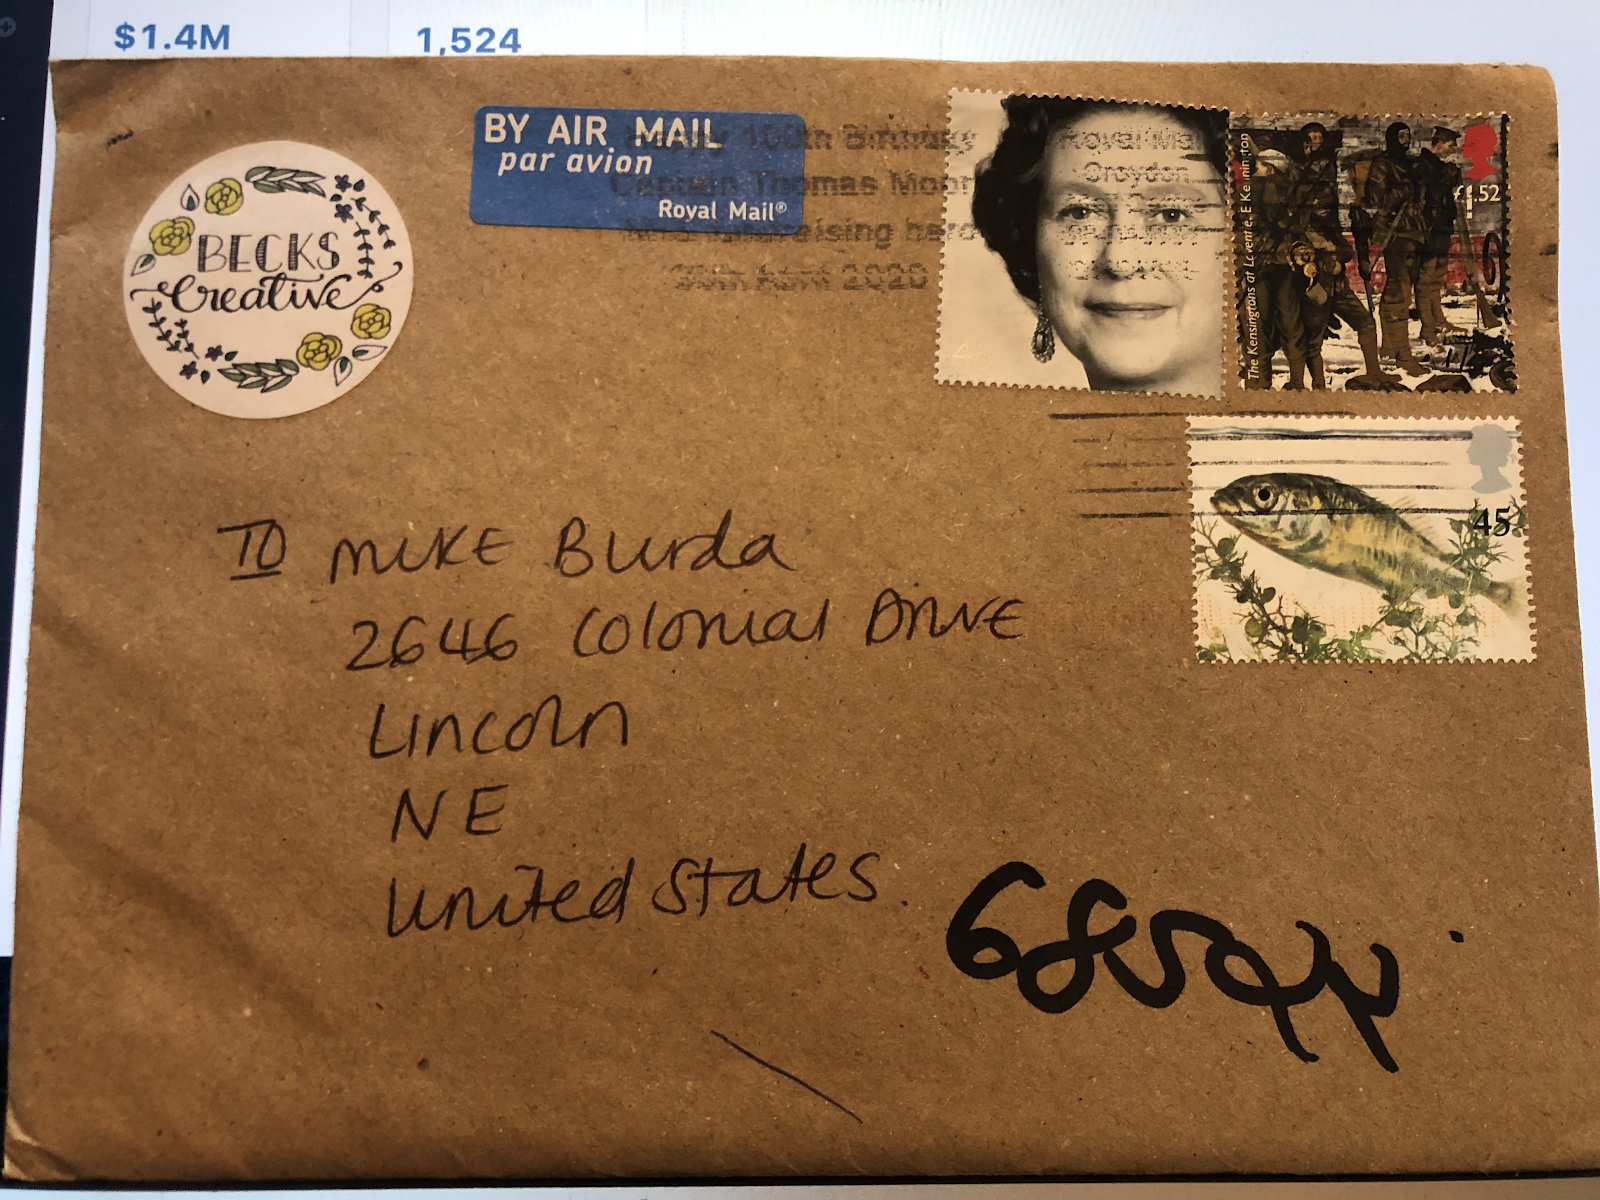 $1.4M 1,524
BY AIR MAIL
par avion
Royal Mail®
Happy 100th Birthday
Captain Thomas Moore
NHS fundraising hero
30th April 2020
Royal Mail
Croydon
BECKS
Creative
The Kensingtons at Laventie, E Kennington
£1.52
45
TO MIKE Burda
2646 Colonial DRIVE
Lincoln
NE
United States.